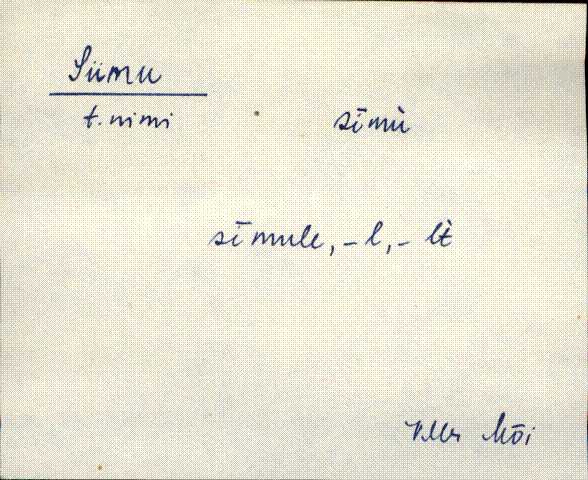 Siimu
t. nimi sīmù
sīmule, -l, -lt̀
Mõi